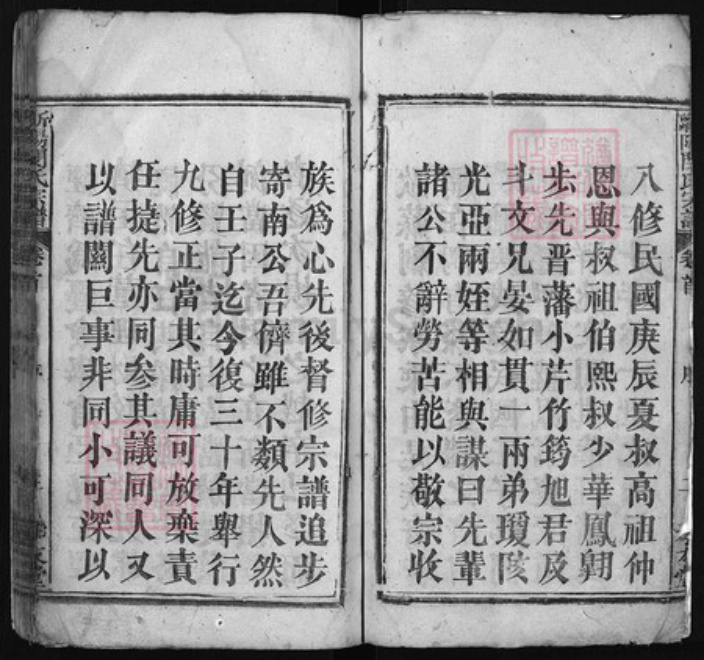 八修民國庚辰夏叔高祖仲
恩與叔祖伯熙叔少華鳳翱
步先晋藩小芹竹筠旭君及
斗文兄晏如貫一兩弟瓊陔
光亞兩姪等相與謀曰先輩
諸公不辭勞苦能以敬宗收
族爲心先後督修宗譜追步
寄南公吾儕雖不類先人然
自壬子迄今復三十年舉行
九修正當其時庸可放棄責
任㨗先亦同參其議同人又
以譜關巨事非同小可深以